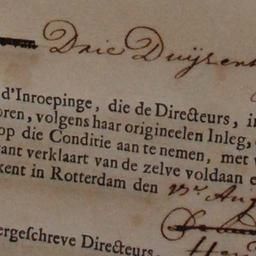 Drie Duijsent
d'Inroepinge, die de Directeurs, in
oren, volgens haar origineelen Inleg,
op die Conditie aan te nemen, met
ant verklaart van de zelve voldaan e
kent in Rotterdam den
ergeschreve Directeurs.